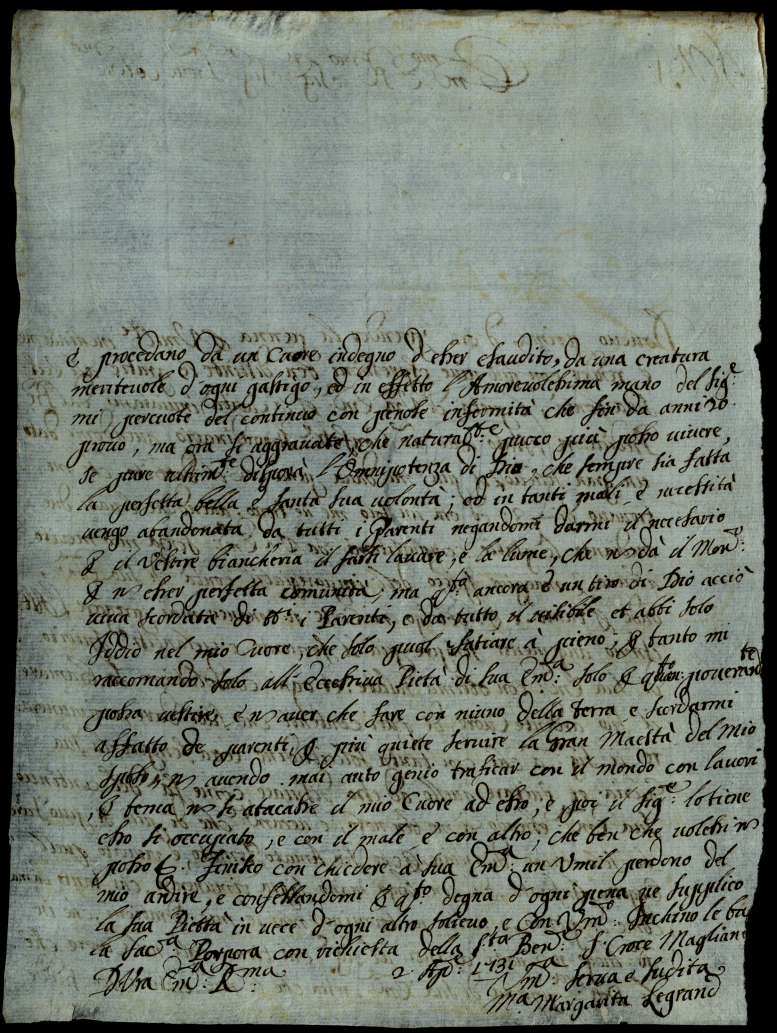 e procedano da un Cuore indegno d'esser esaudito, da una creatura
meritevole d'ogni gastigo, ed in effetto l'Amorevolessima mano del Sig.e
mi percuote del continuo con penose infermità che sin da anni 20
provo, ma ora si aggravate, che natural.te pucco più posso vivere,
se pure altrim.te disporà l'Omnipotenza di Dio, che sempre sia fatta
la perfetta bella e santa sua volontà; ed in tanti mali e necessità
vengo abandonata da tutti i Parenti negandomi darmi il necesario
il vestire biancheria il farli lavare, e la lume, che n dà il Mon.o
n esser perfetta comunità, ma ancora è un tiro di Dio acciò
viva scordata di i Parenti, e da tutto il visibile et abbi solo
Iddio nel mio Cuore, che solo puol satiare à pieno; tanto mi
raccomando solo all'eccessiva Pietà di Sua Em.a solo poveram.te
possa vestire, e n aver che fare con niuno della terra e scordarmi
affatto de parenti, più quiete servire la Gran Maestà del Mio
Sposo, n avendo mai auto genio traficar con il mondo con lavori
, tema n si atacasse il mio Cuore ad esso, e poi il Sig.e lo tiene
si occupato, e con il male e con altro, che ben che volessi n
posso. Finisko con chiedere à Sua Em.a un Umil perdono del
mio ardire, e confessandomi degna d'ogni pena ne supplico
la sua Pietà in vece d'ogni altro solievo, e con inchino le ba
la Sac.ra Porpora con richiesta della S.ta Ben.e S. Croce Magliano
D Vra Em.a R.ma 2 Ap. 1731
serva e sudita
M.a Margarita Legrand